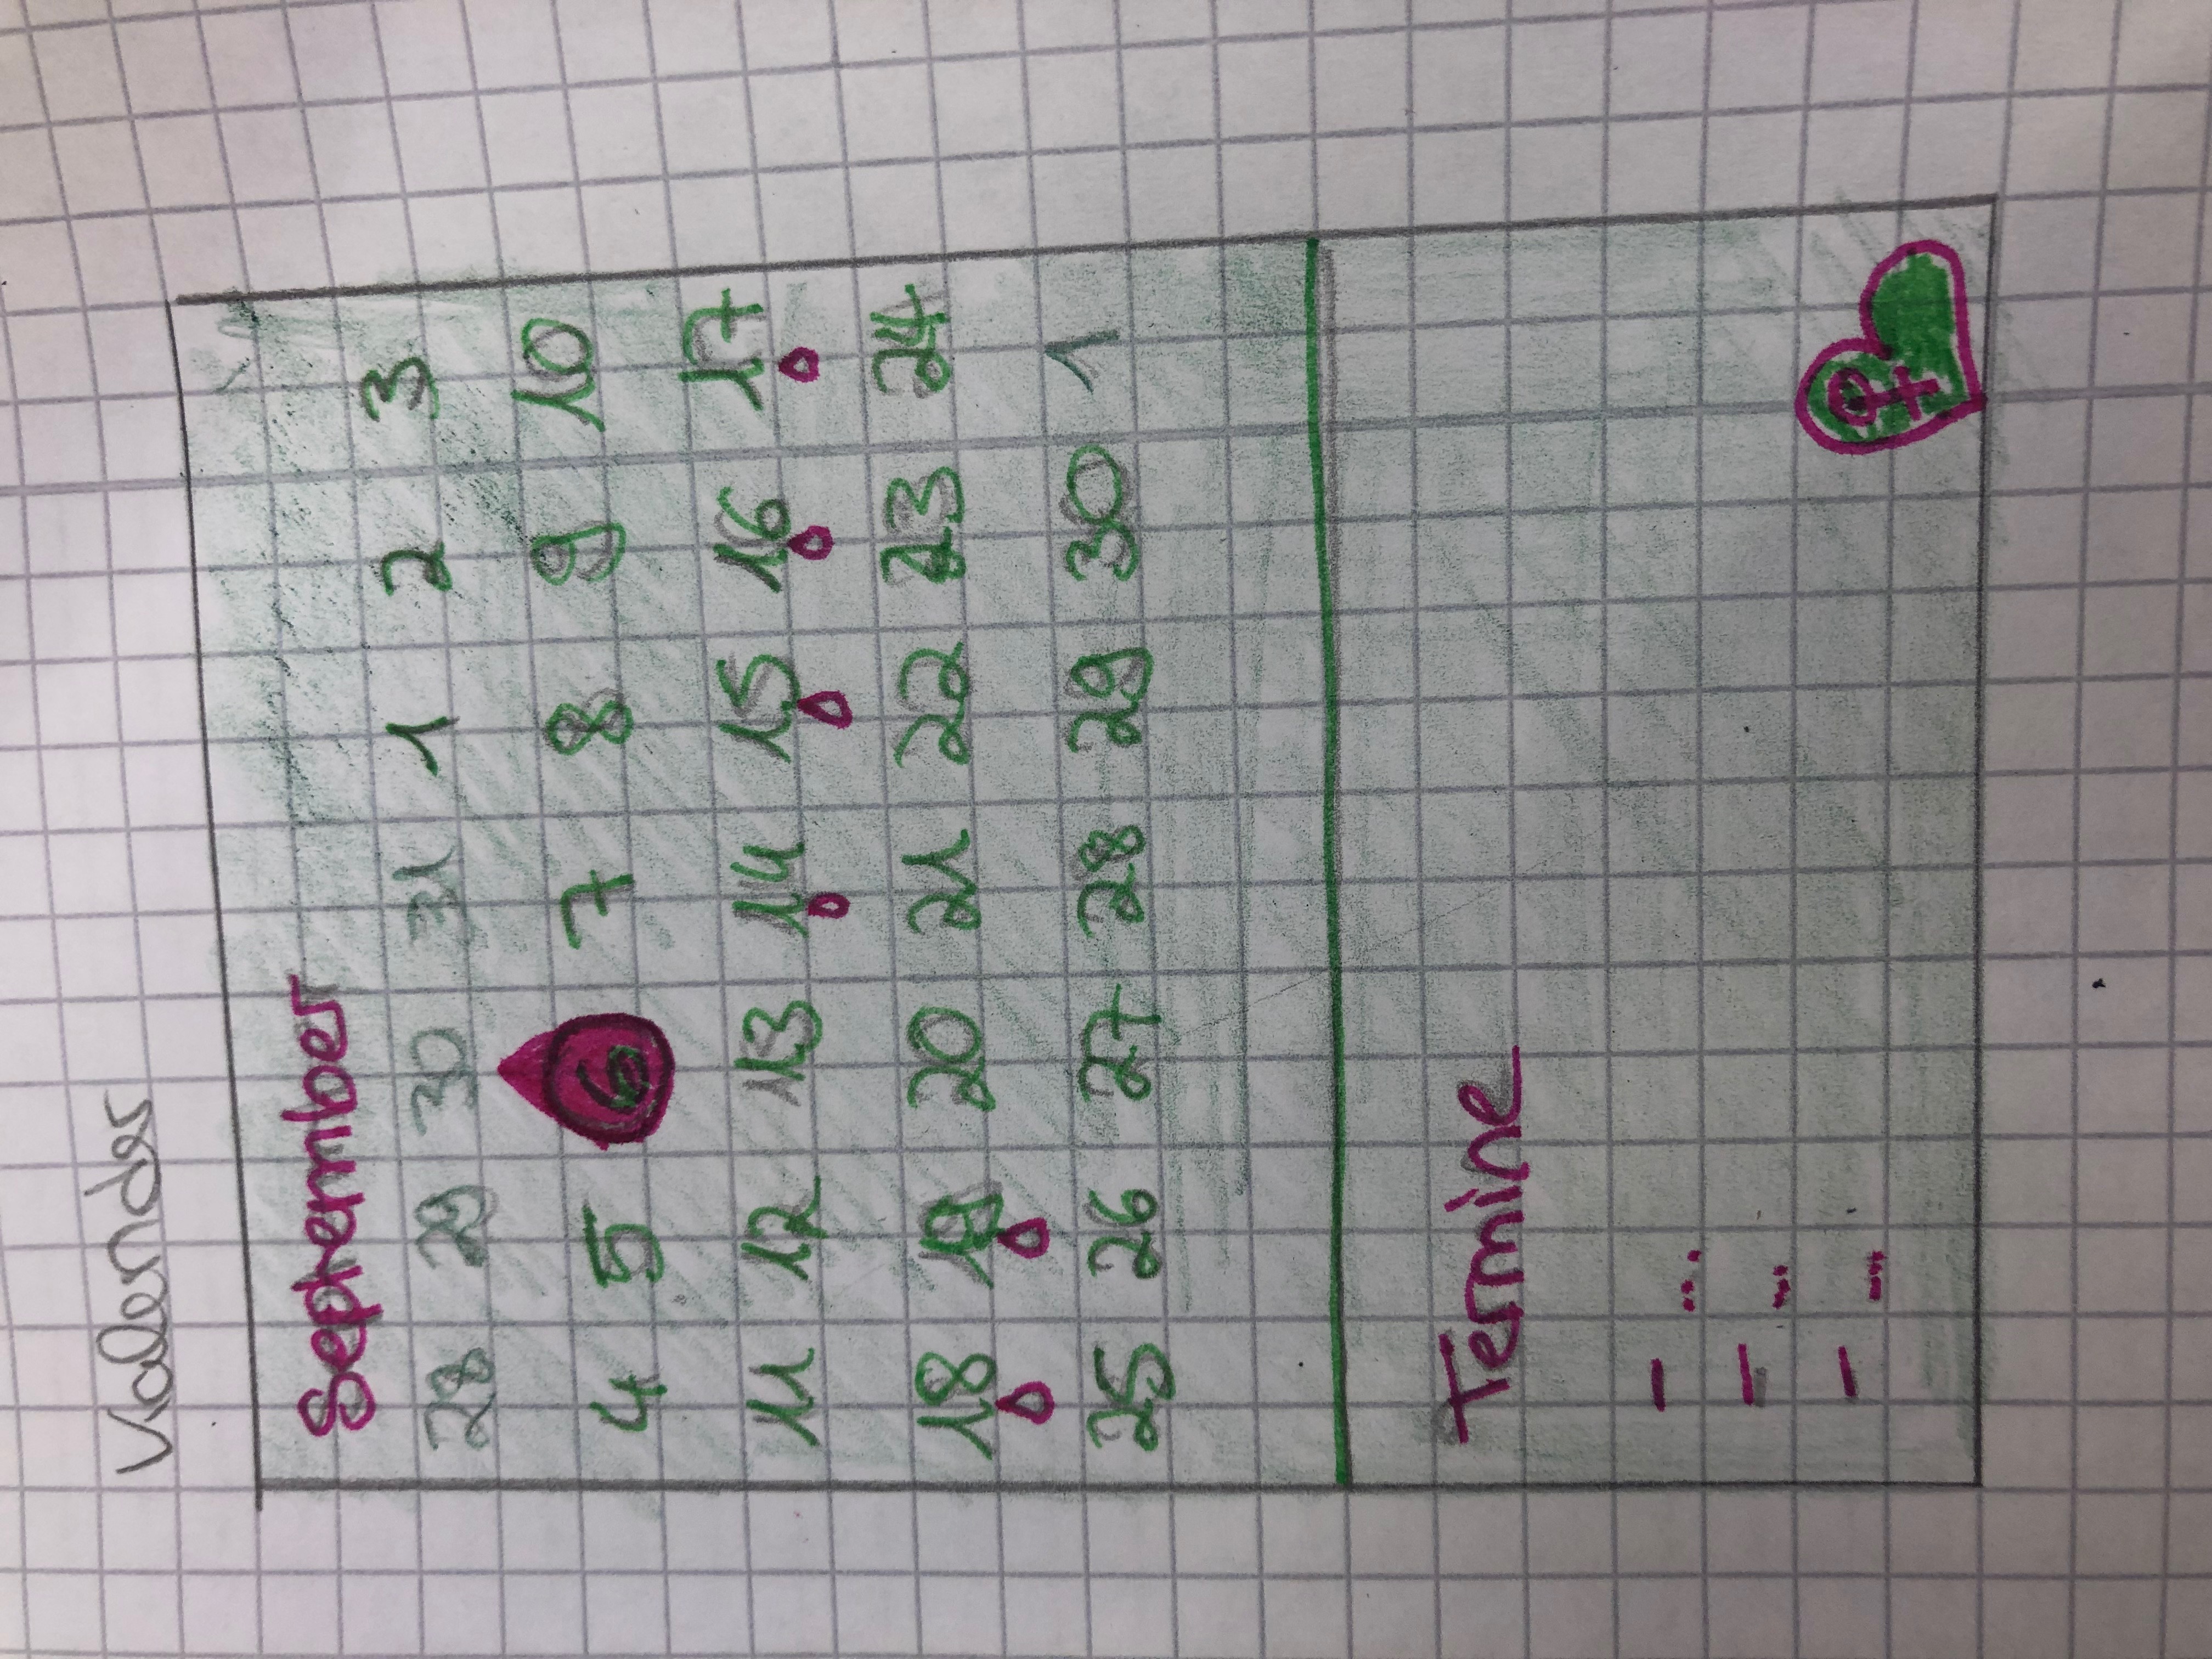 Kalender
September
28 29 30 31 1 2 3
4 5 6 7 8 9 10
11 12 13 14 15 16 17
18 19 20 21 22 23 24
25 26 27 28 29 30 1
Termine
- ...
- ...
- ...